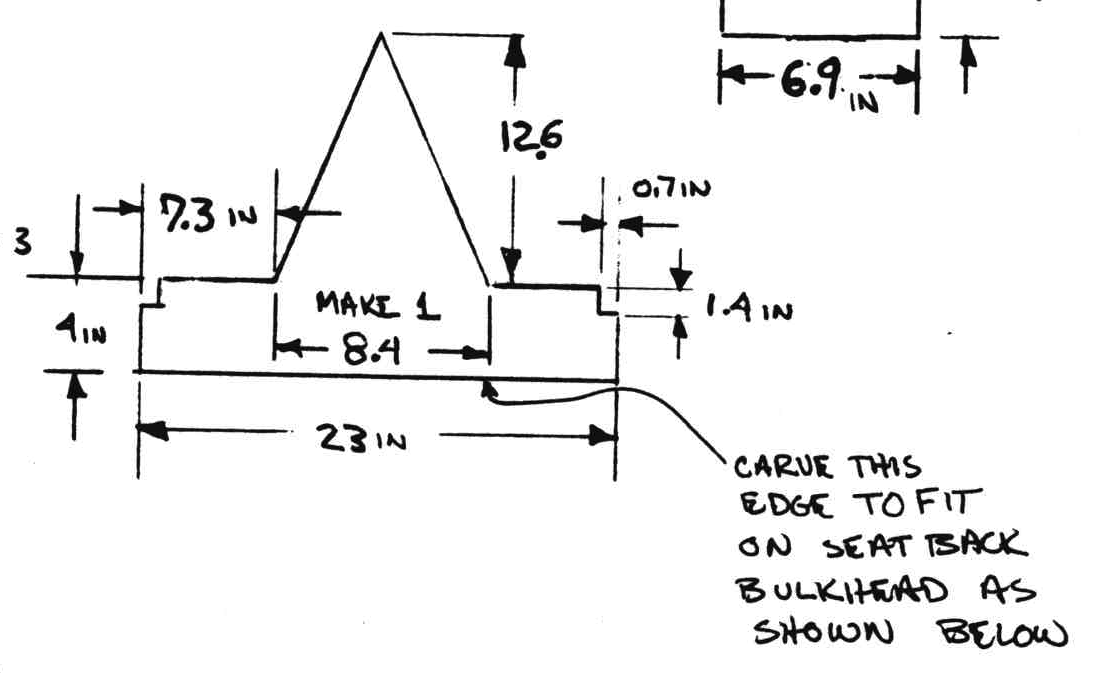 6.9 IN
12.6
0.7 IN
7.3 IN
3
MAKE 1
1.4 IN
4 IN
8.4
23 IN
CARVE THIS
EDGE TO FIT
ON SEAT BACK
BULKHEAD AS
SHOWN BELOW